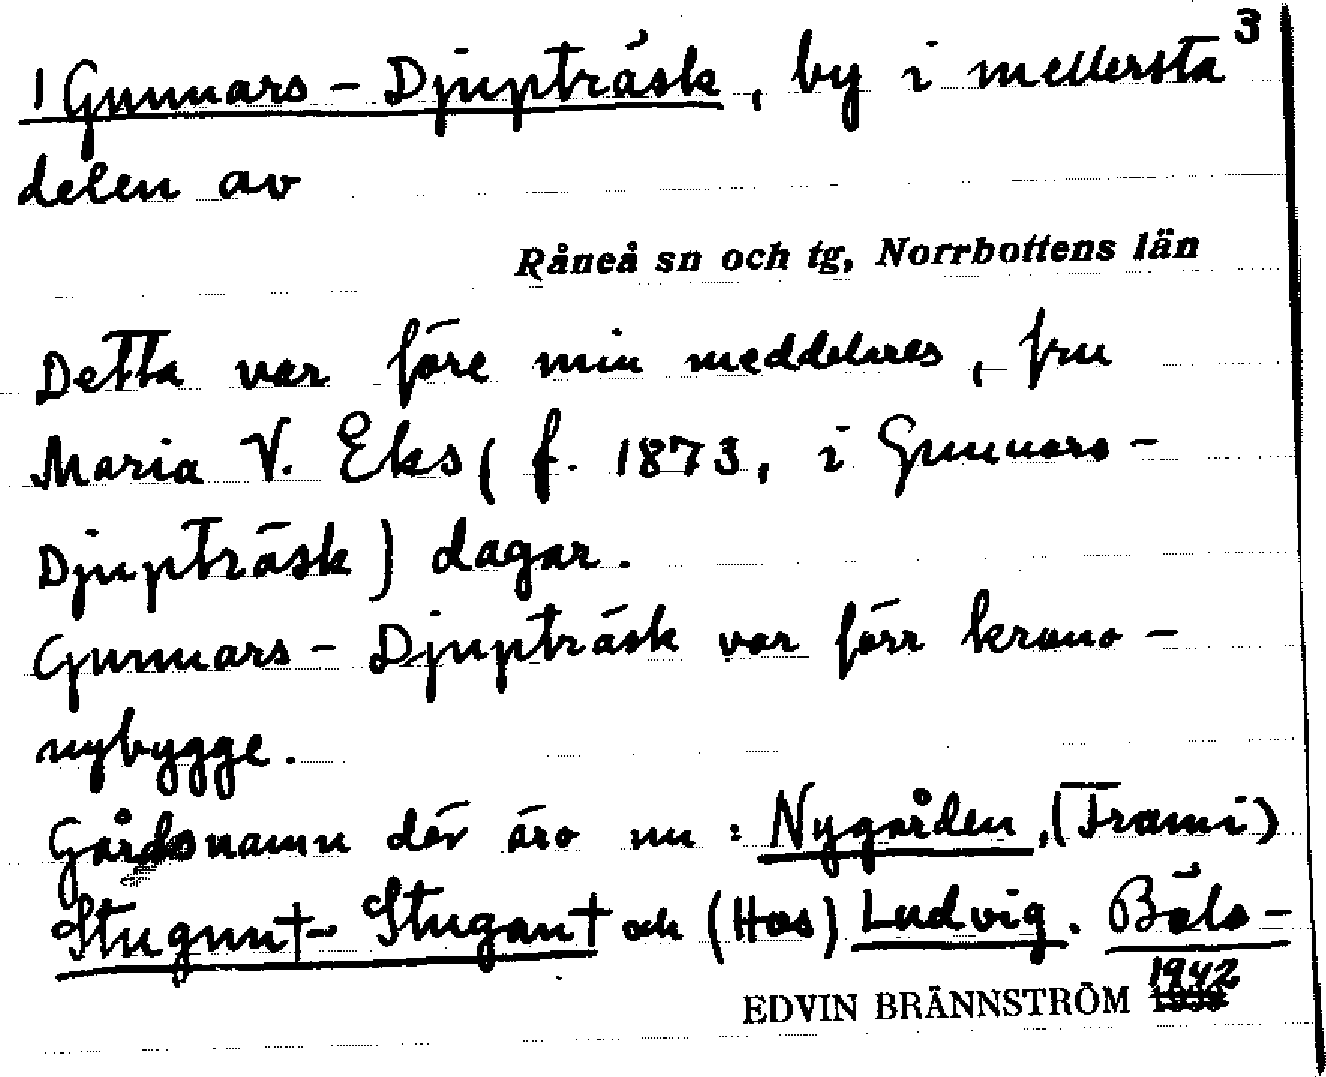 3
1 Gunnars - Djupträsk, by i mellersta
delen av
Råneå sn och tg, Norrbottens län
Detta var före min meddelares, fru
Maria V. Eks (f. 1873, i Gunnars-
Djupträsk) dagar.
Gunnars - Djupträsk var förr krono-
nybygge.
Gårdsnamn där äro nu: Nygården, (Frami)
Stugunt- Stugant och (Hos) Ludvig. Bäls-
EDVIN BRÄNNSTRÖM 1942